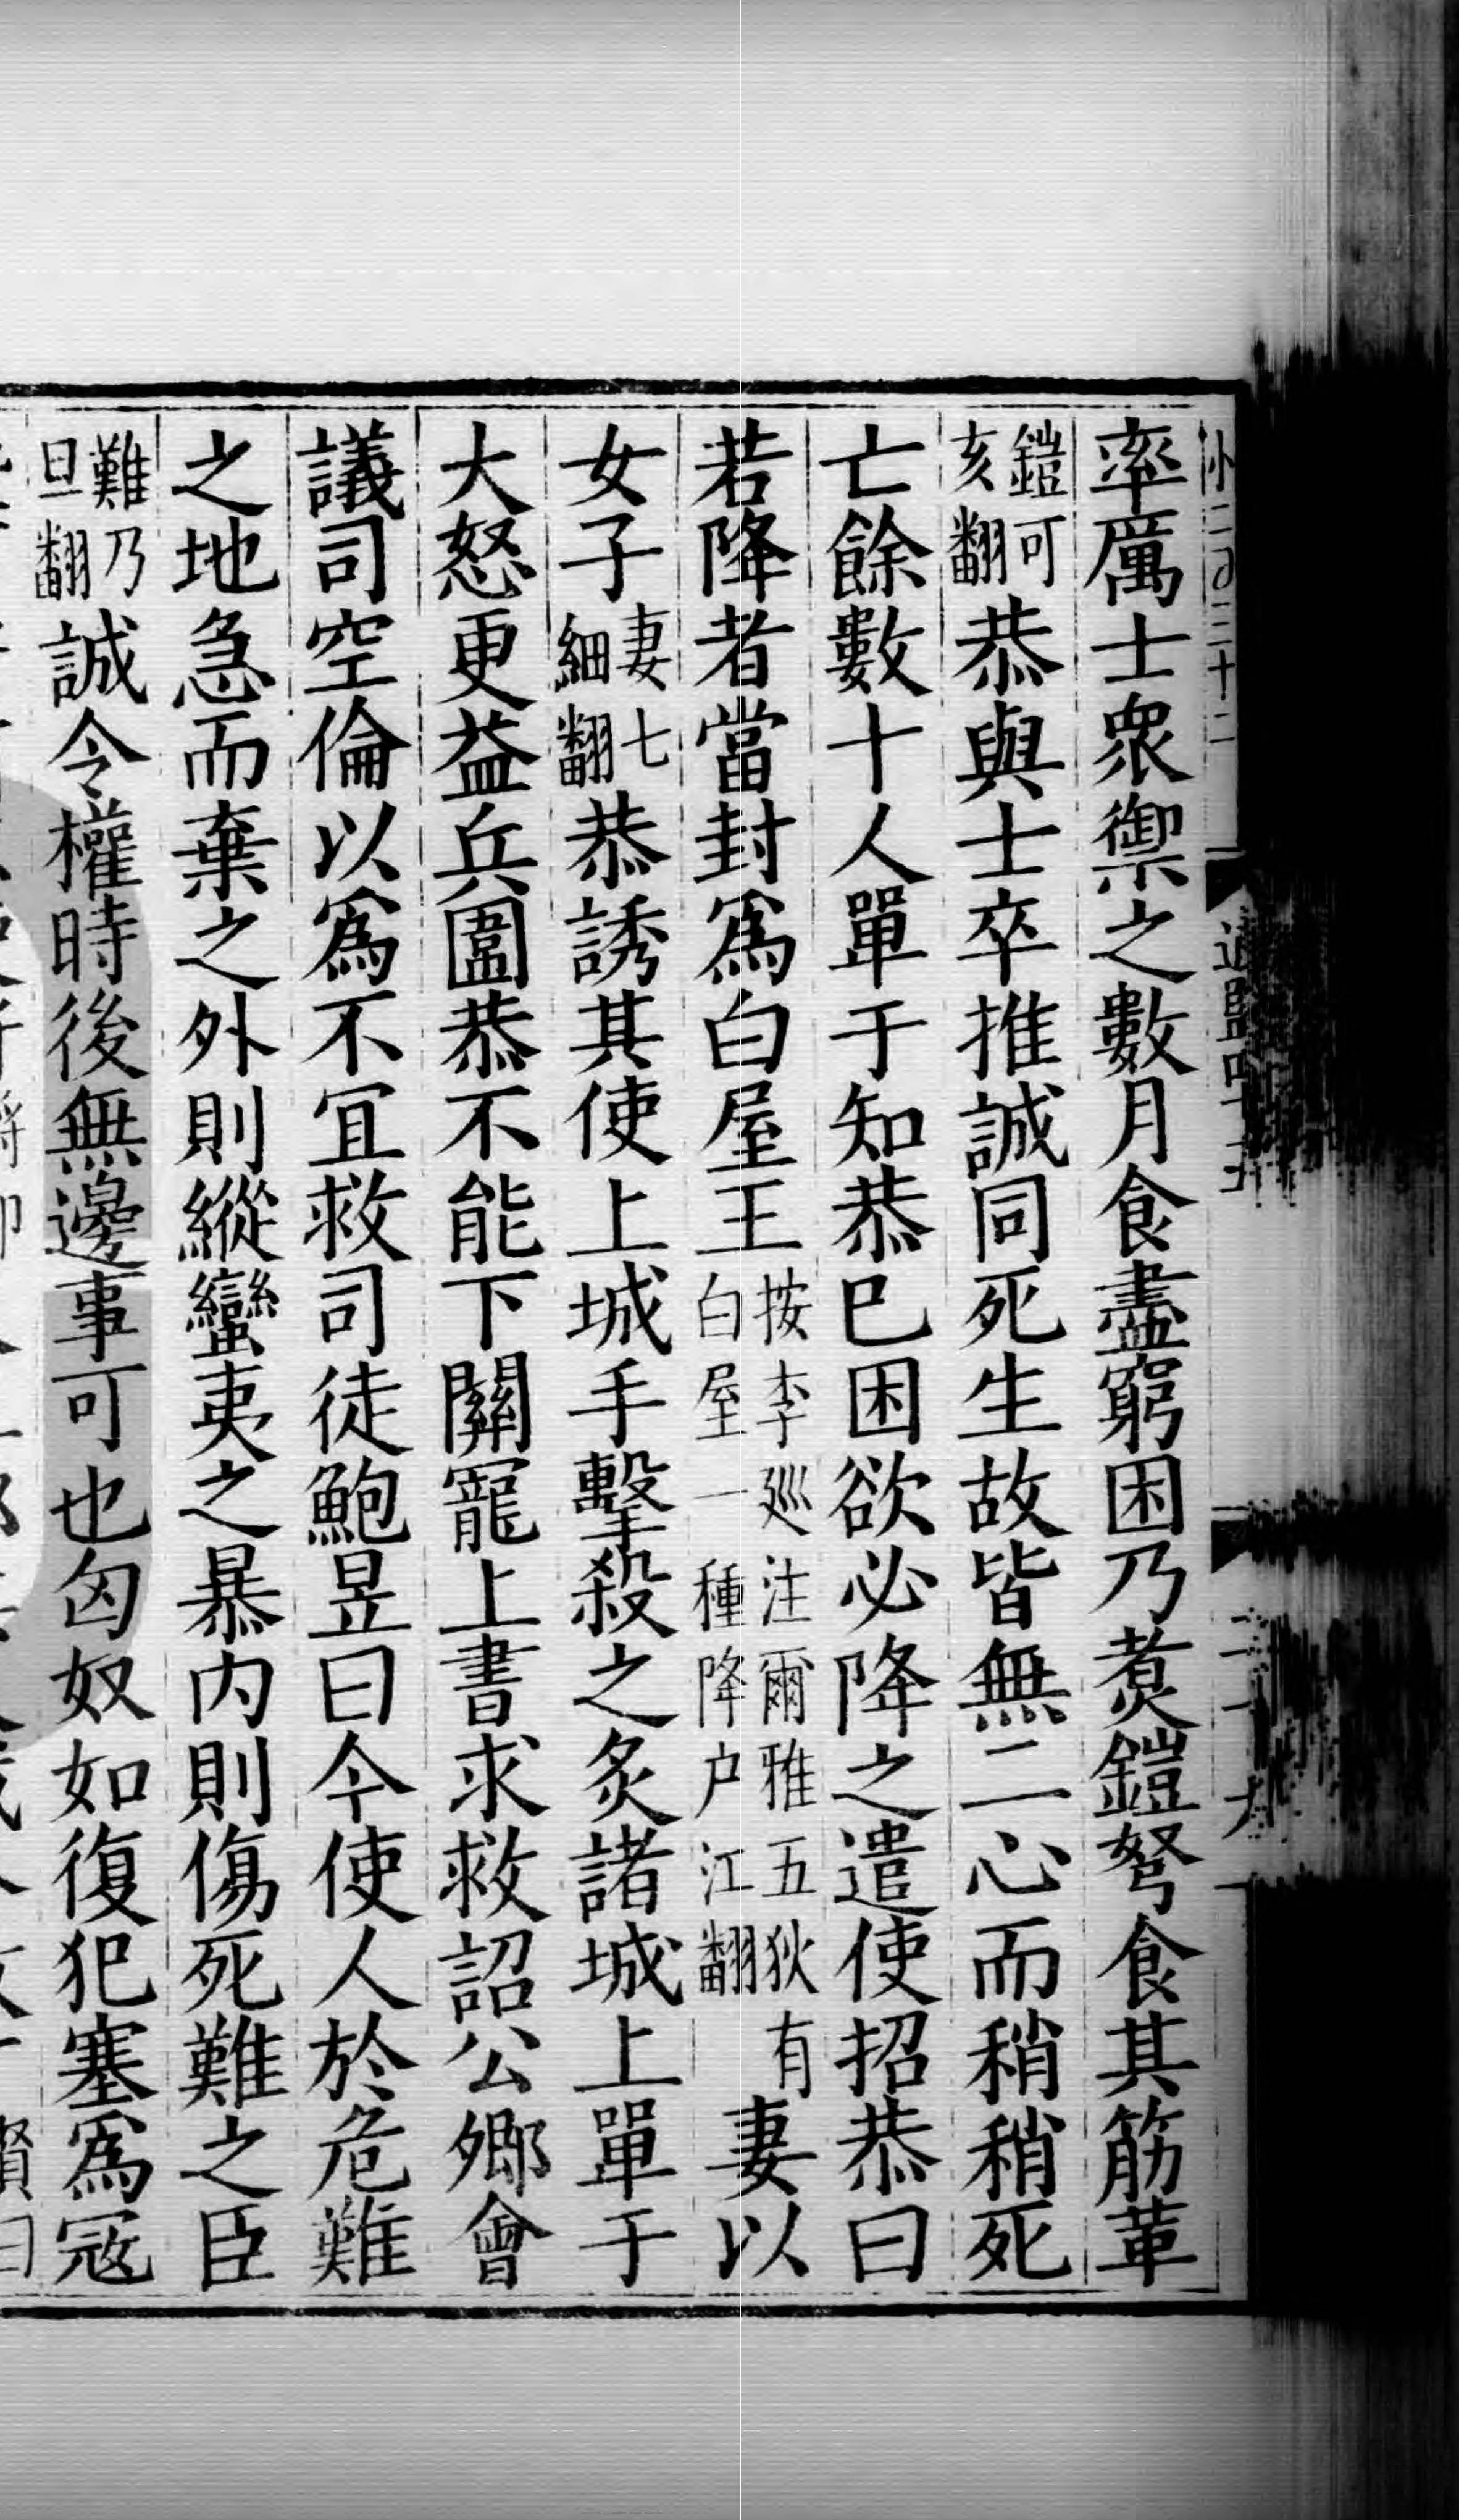 率厲士衆禦之數月食盡窮困乃煑鎧弩食其筋革
鎧可亥翻恭與士卒推誠同死生故皆無二心而稍稍死
亡餘數十人單于知恭巳困欲必降之遣使招恭曰
若降者當封爲白屋王按李廵注爾雅五狄有白屋一種降户江翻妻以
女子妻七細翻恭誘其使上城手擊殺之炙諸城上單于
大怒更益兵圍恭不能下關寵上書求救詔公卿會
議司空倫以爲不宜救司徒鮑昱曰今使人於危難
之地急而棄之外則縱蠻夷之暴内則傷死難之臣
難乃旦翻誠令權時後無邊事可也匈奴如復犯塞爲寇